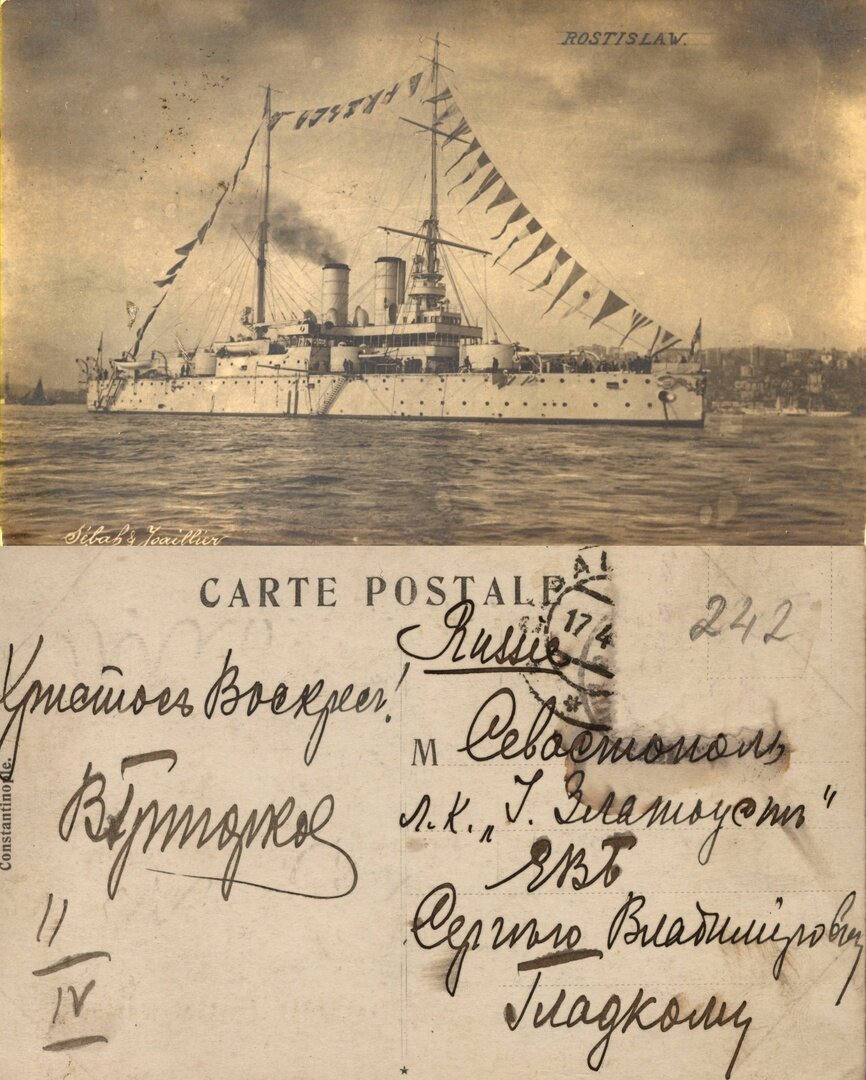 ROSTISLAW.
Sébah & Joaillier
CARTE POSTALE
17 4
242
Russie
Христосъ Воскресъ!
II
IV
Constantinople.
М Севастополь
л.к. „І. Златоустъ"
ЕВБ
Сергѣю Владиміровичу
Гладкому